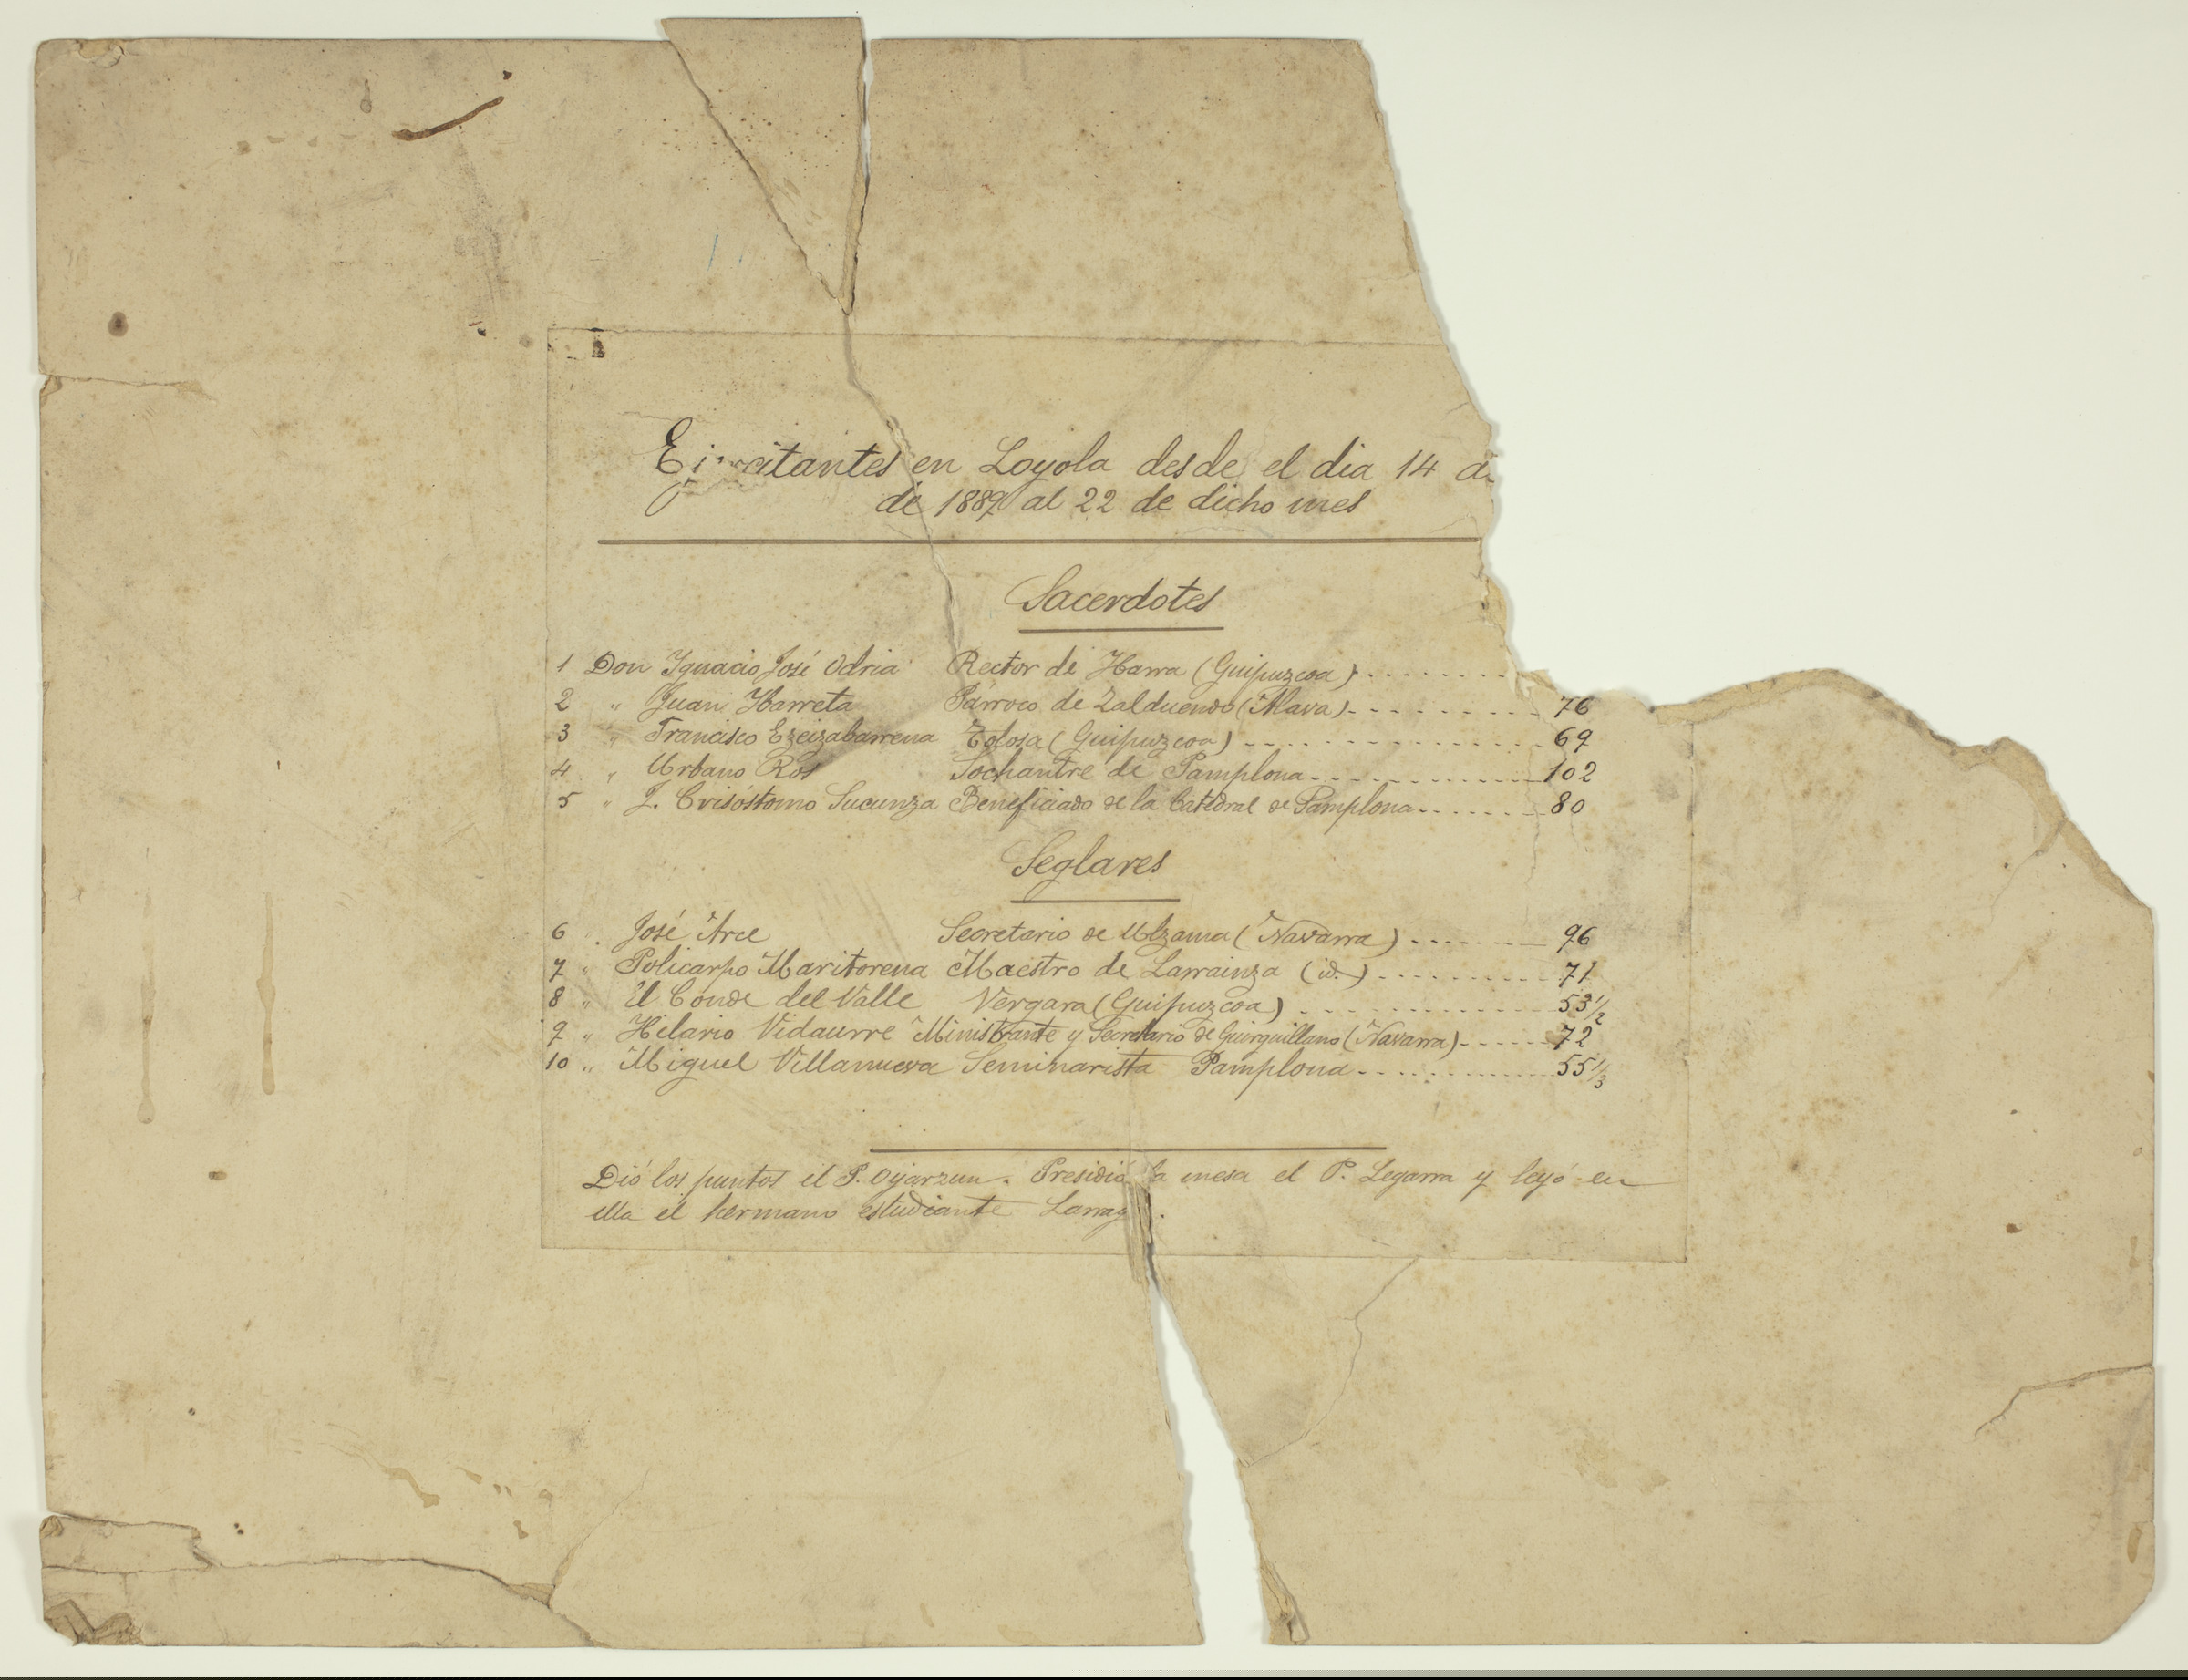 Ejercitantes en Loyola desde el dia 14 d
de 1889 al 22 de dicho mes
Sacerdotes
1 Don Ignacio José Odria Rector de Ibarra (Guipuzcoa) - - - - - - - -
2 " Juan Ibarreta Párroco de Zalduendo (Alava) - - - - - - - - - 76
3 " Francisco Ezeizabarrena Tolosa (Guipuzcoa) - - - - - - - - - - - - - 69
4 " Urbano Ros Sochantre de Pamplona - - - - - - - - - - - 102
5 " J. Crisóstomo Sucunza Beneficiado de la Catedral de Pamplona - - - - - - - 80
Seglares
6 " José Arce Secretario de Ulzama (Navarra) - - - - - - - 96
7 " Policarpo Maritorena Maestro de Larrainza (id.) - - - - - - - - - - 71
8 " El Conde del Valle Vergara (Guipuzcoa) - - - - - - - - - - - - - 53 1/2
9 " Hilario Vidaurre Ministrante y Secretario de Guirguillano (Navarra) - - - - - 72
10 " Miguel Villanueva Seminarista Pamplona - - - - - - - - - - - 55 1/3
Dió los puntos el P. Oyarzun. Presidió la mesa el P. Legarra y leyó en
ella el hermano estudiante